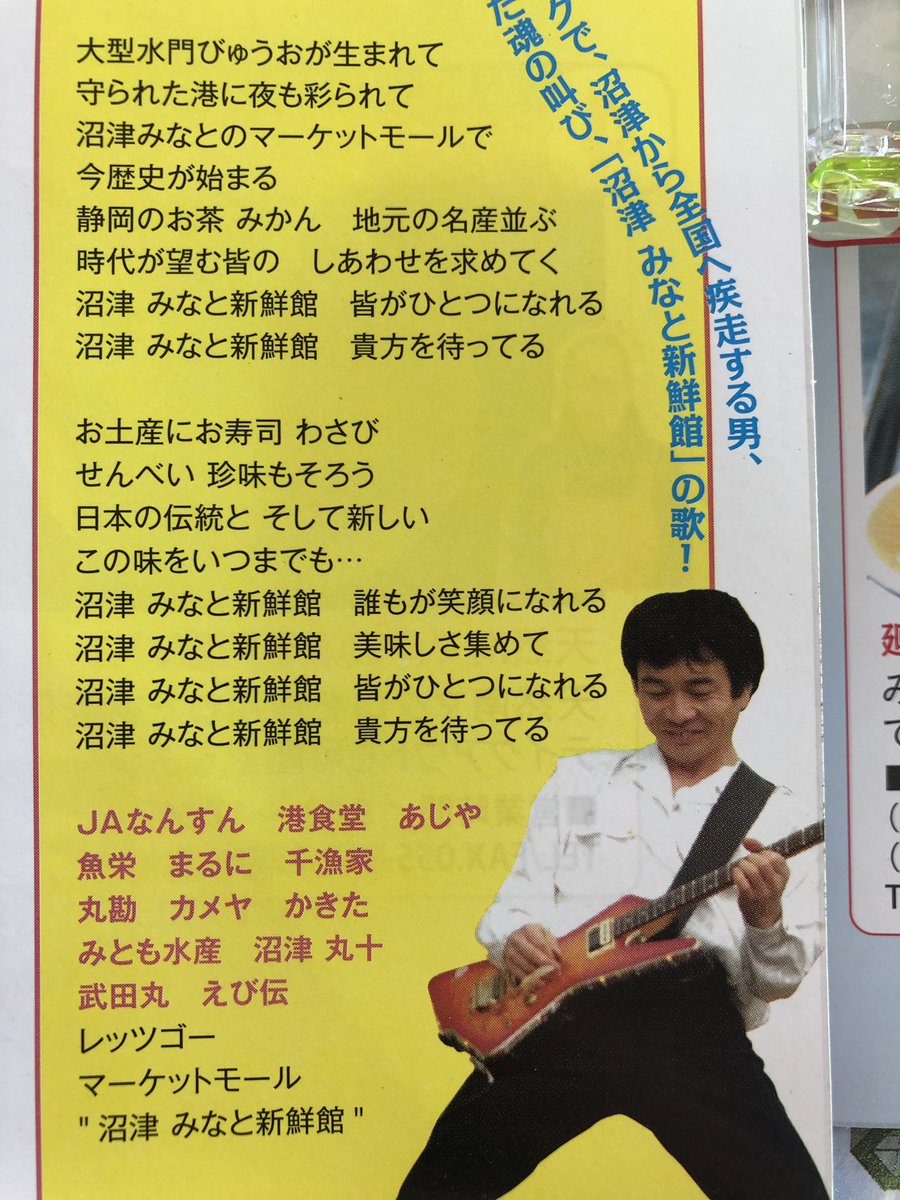 大型水門びゅうおが生まれて
守られた港に夜も彩られて
沼津みなとのマーケットモールで
今歴史が始まる
静岡のお茶 みかん　地元の名産並ぶ
時代が望む皆の　しあわせを求めてく
沼津 みなと新鮮館　皆がひとつになれる
沼津 みなと新鮮館　貴方を待ってる
お土産にお寿司 わさび
せんべい 珍味もそろう
日本の伝統と そして新しい
この味をいつまでも…
沼津 みなと新鮮館　誰もが笑顔になれる
沼津 みなと新鮮館　美味しさ集めて
沼津 みなと新鮮館　皆がひとつになれる
沼津 みなと新鮮館　貴方を待ってる
JAなんすん　港食堂　あじや
魚栄　まるに　千漁家
丸勘　カメヤ　かきた
みとも水産　沼津 丸十
武田丸　えび伝
レッツゴー
マーケットモール
" 沼津 みなと新鮮館 "
クで、沼津から全国へ疾走する男、
た魂の叫び、「沼津 みなと新鮮館」の歌！
み
て
■
（
（
T